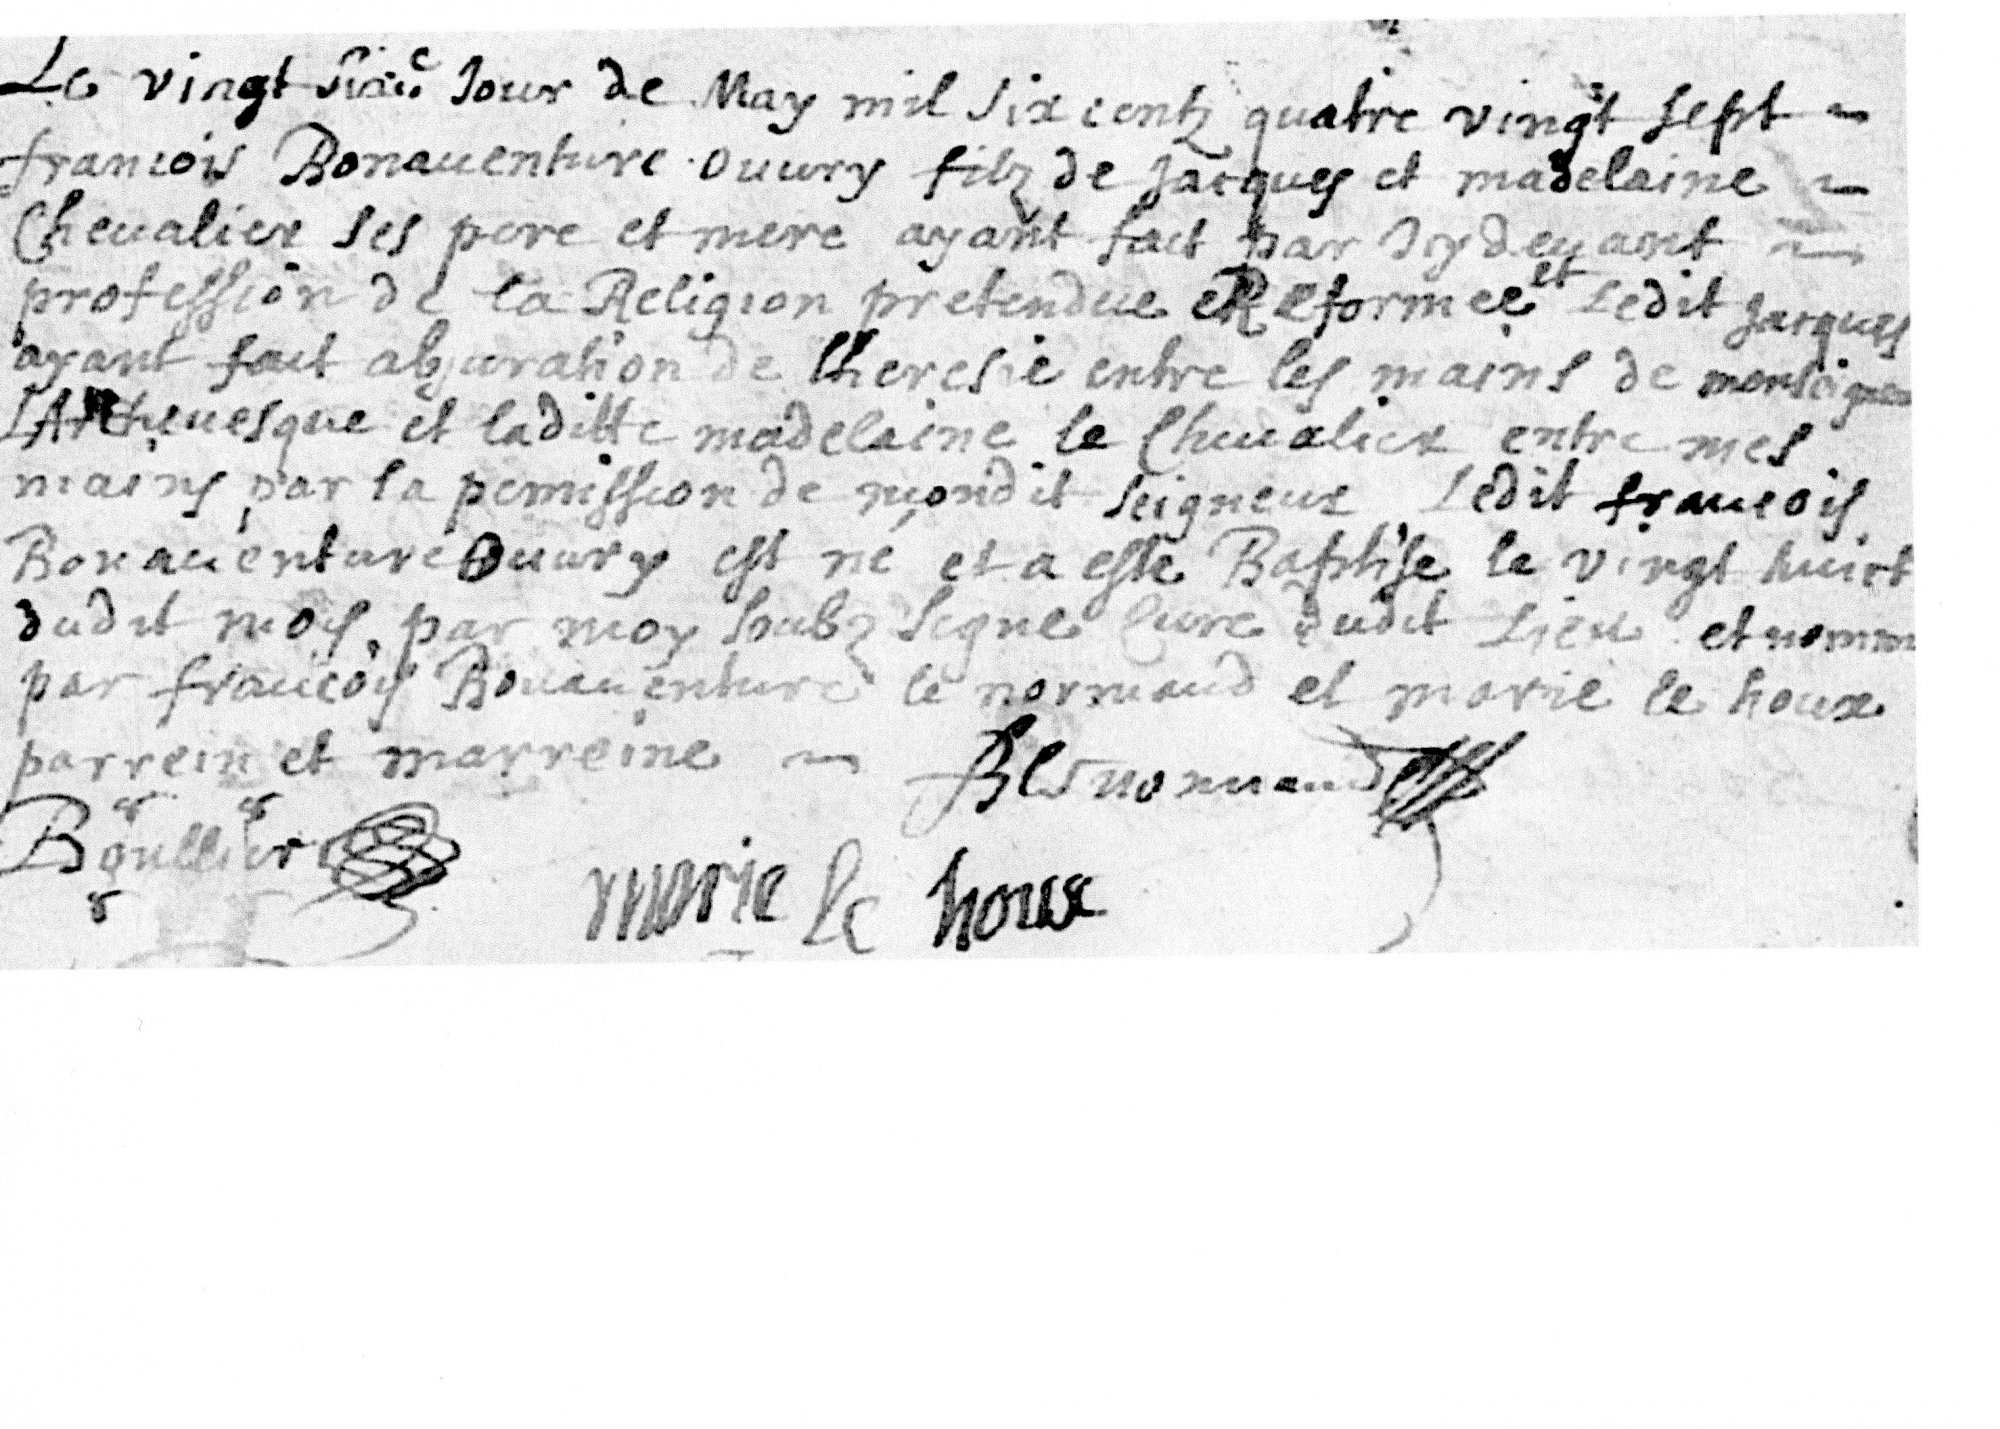 Le vingt sixie Jour de May mil six centz quatre vingt sept
francois Bonauenture Ouury filz de Jacques et madelaine
Cheualier ses pere et mere ayant fait par Jcydeuant
profession de la Religion pretendue Reformee et Ledit Jacques
ayant fait abjuration de lheresie entre les mains de monseigneur
LArcheuesque et laditte madelaine le Cheualier entre mes
mains par la permission de mondit seigneur Ledit francois
Bonauenture Ouury est né et a esté Baptise le vingt huict
dudit mois par moy soubz signé Curé dudit Lieu et nommé
par francois Bonauenture le normand et marie le houx
parrein et marreine
B le normand
Boullier
marie le houx